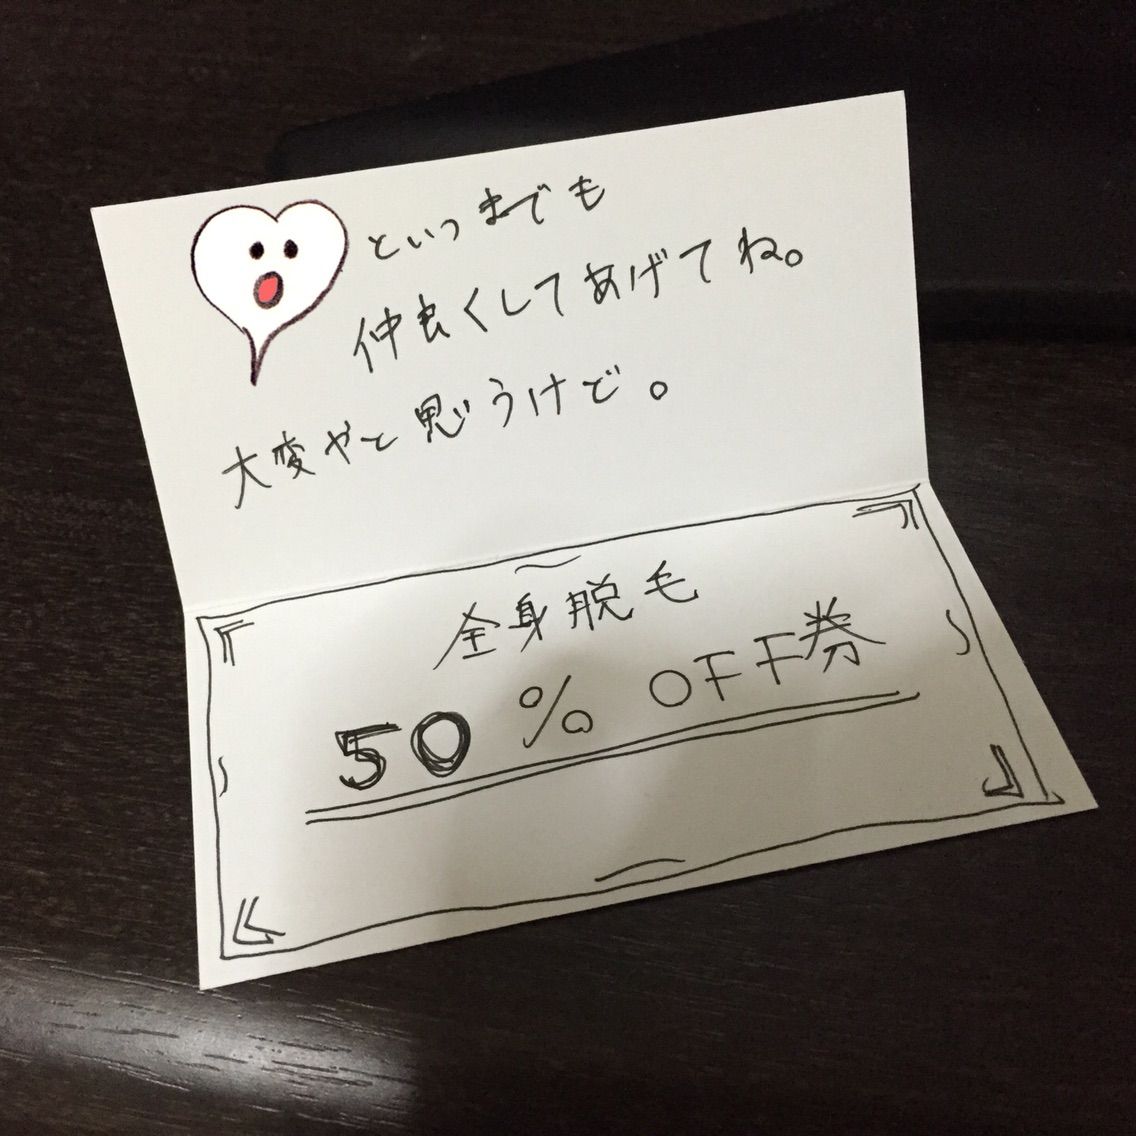 といつまでも
仲良くしてあげてね。
大変やと思うけど。
全身脱毛
50% OFF券